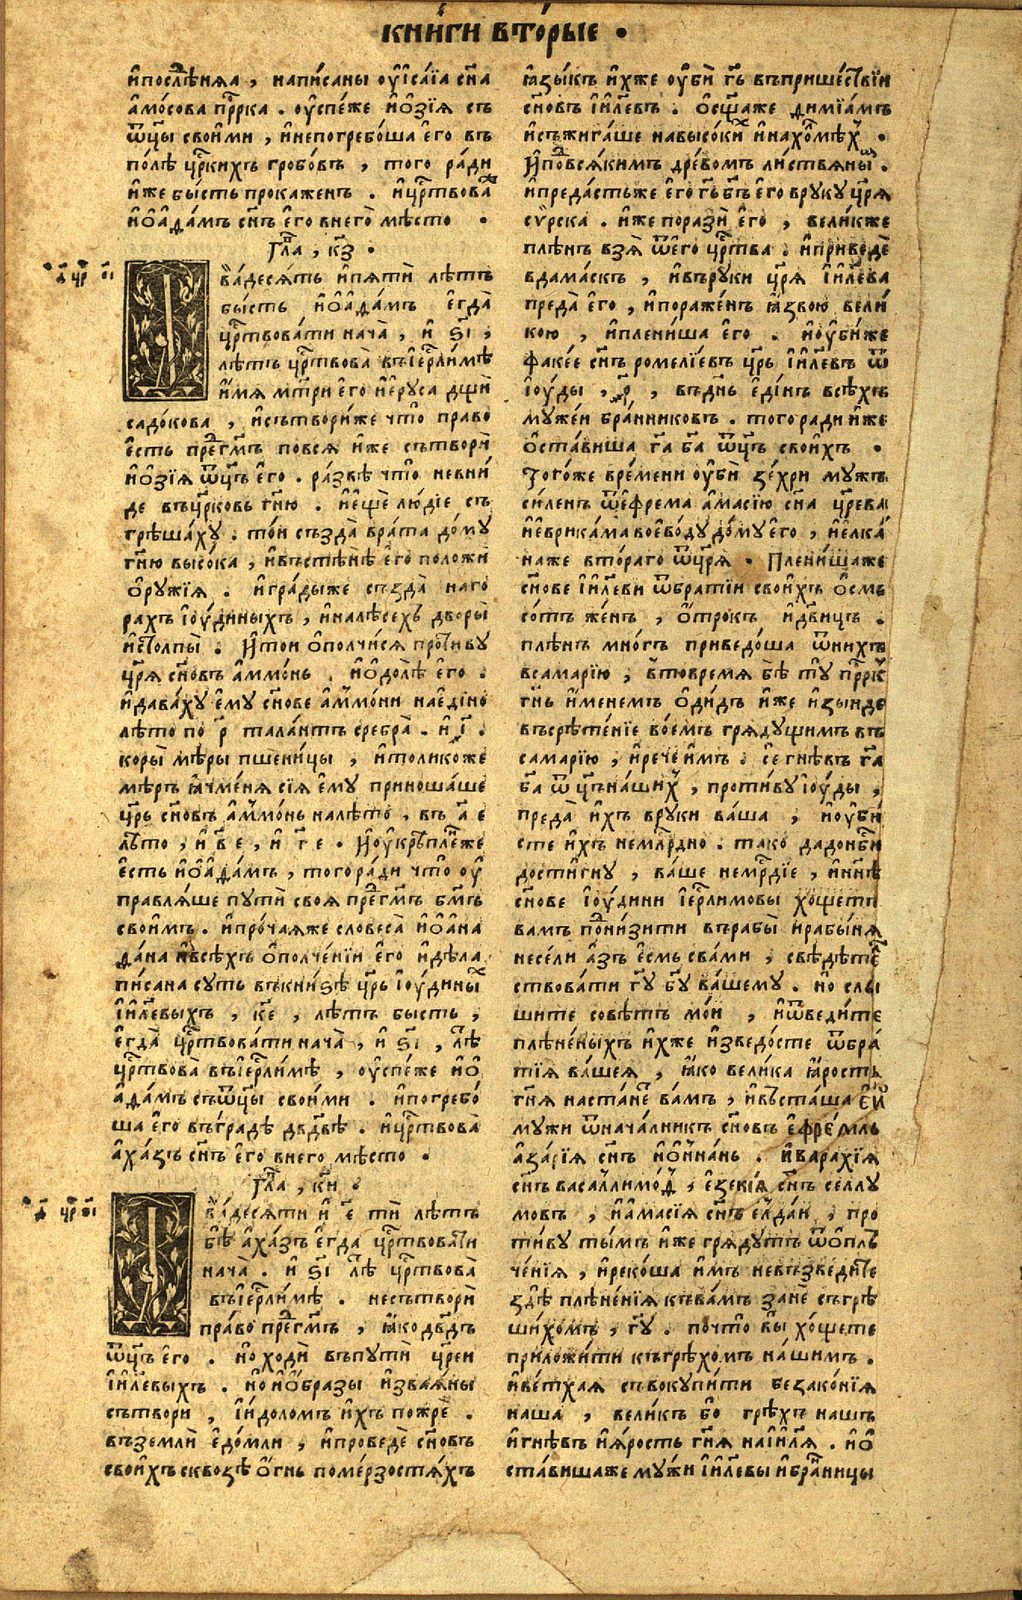 кни́ги вторы́е .
и҆послѣ́няа , напи́саны оу҆і҆са́їа сн҃а
а҆мо́сова прⷪ҇рка . оу҆спе́же и҆о҆зі́я съ
ѿц҃ы свои́ми , и҆непогребо́ша є҆го̀ въ
по́лѣ цр҃кихъ гробо́въ , того̀ ра́ди
и҆́же бы́сть прокаже́нъ . и҆црⷭ҇твова
и҆о҆а҆да́мъ сн҃ъ є҆го̀ внего̀ мѣ́сто .
Гла҃ , к҃з .
а҃ црⷭ҇ г҃і
Ѵ҆ва́десять и҆пятѝ лѣ́тъ
бы́сть и҆о҆а҆да́мъ є҆гда̀
црⷭ҇твова́ти нача̀ , и҆ ѕ҃і ,
лѣ́тъ црⷭ҇твова̀ въі҆ерⷭ҇ли́мѣ
и҆́мя мт҃ри є҆го̀ и҆е҆ру́са дщѝ
садо́кова , и҆сътвори́же что̀ пра́во
є҆́сть преⷣгмⷭ҇ъ повся̀ и҆́же сътворѝ
и҆о҆зі́я ѿц҃ъ є҆го̀ . ра́звѣ что̀ невни́
де въцр҃ковь гн҃ю . и҆е҆щѐ лю́діе съ
грѣша́хꙋ . то́и създа̀ врата̀ до́мꙋ
гн҃ю высо́ка , и҆въстѣнѣ̀ є҆го̀ положѝ
о҆рꙋ́жїя . и҆гра́дыже създа̀ наго
ра́хъ і҆оу́диныхъ , и҆налѣ́сехъ дворы̀
и҆столпы̀ . И҆то́и о҆полчи́ся проти́вꙋ
цр҃я сн҃овъ а҆ммо́нь . и҆о҆долѣ̀ є҆го̀ .
и҆дава́хꙋ є҆мꙋ̀ сн҃ове а҆ммо́ни нае҆ди́но
лѣ́то по р҃ тала́нтъ сребра̀ . и҆ і҃ .
коры̀ мѣ́ры пшени́цы , и҆толи́коже
мѣ́ръ ꙗ҆чме́ня сїя̀ є҆мꙋ̀ приноша́ше
цр҃ь сн҃овъ а҆ммо́нь налѣ́то , въ а҃ е
лѣ́то , и҆ в҃ е , и҆ г҃ е . И҆оу҆крѣпле́же
є҆́сть и҆о҆а҆да́мъ , того̀ра́ди что̀ оу҆
правля́ше пꙋтѝ своя̀ преⷣгмⷭ҇ъ бг҃мъ
свои́мъ . и҆про́чаяже словеса̀ и҆о҆а҆на
да́на и҆всѣ́хъ о҆полче́нїи є҆го̀ и҆дѣла̀
пи́сана сꙋ́ть въкни́ѕѣ цр҃ь і҆оу́диныхъ
і҆и҃левыхъ , к҃е , лѣ́тъ бы́сть ,
є҆гда̀ црⷭ҇твова́ти нача̀ , и҆ ѕ҃і , лѣ
црⷭ҇твова̀ въі҆ерⷭ҇ли́мѣ , оу҆спе́же и҆о҆
а҆да́мъ съѿц҃ы свои́ми . и҆погребо́
ша є҆го̀ въгра́дѣ дв҃двѣ . и҆црⷭ҇твова̀
а҆ха́зъ сн҃ъ є҆го̀ внего̀ мѣ́сто .
Гла҃ , к҃и .
Ѵ҆ва́десяти и҆ е҃ ти лѣ́тъ
бѣ̀ а҆ха́зъ є҆гда̀ црⷭ҇твова́ти
нача̀ . и҆ ѕ҃і лѣ црⷭ҇твова̀
въі҆ерⷭ҇ли́мѣ . несътворѝ
пра́во преⷣгмⷭ҇ъ , ꙗ҆ко дв҃дъ
ѿц҃ъ є҆го̀ . но ходѝ въпꙋтѝ цр҃еи
і҆и҃левыхъ . но и҆о҆́бразы и҆звая́ны
сътворѝ , і҆́доломъ и҆́хъ пожрѐ .
въземлѝ є҆до́мли , и҆проведѐ сн҃овъ
свои́хъ сквозѣ̀ о҆́гнь поме́рзостяхъ
ꙗ҆зы́къ и҆́хже оу҆бѝ гь҃ въприше́ствїи
сн҃овъ і҆и҃левъ . о҆сща́же димїа́мъ
и҆съжига́ше навысо́кихъ и҆нахо́лмѣхъ .
И҆поⷣвся́кимъ дре́вомъ ли́ствянымъ .
и҆преда́стьже є҆го̀ гь҃ бг҃ъ є҆го̀ врꙋ́кꙋ цр҃я
сѵ́рска . и҆́же поразѝ є҆го̀ , вели́кже
плѣ́нъ взя̀ ѿе҆го̀ црⷭ҇тва . и҆приведѐ
вдама́скъ , и҆въ́рꙋки цр҃я і҆и҃лева
преда̀ є҆го̀ , и҆пораже́нъ ꙗ҆́звою вели́
кою , и҆плени́ша є҆го̀ . и҆оу҆би́же
факе́е сн҃ъ роме́лїевъ цр҃ь і҆и҃левъ ѿ
і҆оу́ды , р҃к , въдн҃ь є҆ди́нъ всѣ́хъ
мꙋже́и бра́нниковъ . того̀ ради и҆́же
о҆ста́виша га҃ ба҃ ѿц҃ъ свои́хъ .
Того́же вре́мени оу҆бѝ зе́хри мꙋ́жъ
си́ленъ ѿе҆фре́ма а҆ма́сїю сн҃а цр҃ева
и҆е҆врика́ма воево́дꙋ до́мꙋ є҆го̀ , и҆е҆лка́
наже втора́го ѿцр҃я . Плени́шаже
сн҃ове і҆и҃леви ѿбра́тїи свои́хъ о҆́смь
со́тъ же́нъ , о҆́трокъ и҆дв҃ицъ .
плѣ́нъ мно́гъ приведо́ша ѿни́хъ
всамарі́ю , в҆то́время бѣ̀ тꙋ̀ прⷪ҇ркъ
гн҃ь и҆́менемъ о҆ди́дъ и҆́же и҆зы́иде
въсрѣ́тенїе во́емъ грядꙋ́щимъ въ
самарі́ю , и҆речѐ и҆́мъ . се гнѣ́въ га҃
ба҃ ѿц҃ъна́шихъ , проти́вꙋ і҆оу́ды ,
преда̀ и҆́хъ врꙋ́ки ва́ша , и҆оу҆би́
сте и҆́хъ немлⷭ҇рдно . та́ко даⷣонб҃си
дости́гнꙋ , ва́ше немлⷭ҇рдїе , и҆нн҃ѣ
сн҃ове і҆оу́дини і҆ерⷭ҇ли́мовы хо́щете
вамъ пони́зити врабы̀ и҆рабы́ня
несели а҆́зъ є҆́смь сва́ми , свѣдѣ́те
ствовати гꙋ҃ бꙋ҃ ва́шемꙋ . но слы́
шите совѣ́тъ мо́и , и҆ѿведи́те
плѣне́ныхъ и҆́хже и҆зведо́сте ѿбра́
тїя ва́шея , ꙗ҆ко вели́ка ꙗ҆́рость
гн҃я наста́не ва́мъ , и҆въста́ша є҆и҆
мꙋ́жи ѿнача́лникъ сн҃овъ є҆фре́мль
а҆за́рїя сн҃ъ и҆о҆нна́нь . и҆варахі́я
сн҃ъ васалли́моⷣ , є҆зекі́я сн҃ъ се́ллꙋ
мовъ , и҆а҆ма́сїя сн҃ъ є҆лда́и , про
ти́вꙋ ты́мъ и҆́же грядꙋ́тъ ѿо҆плъ
че́нїя , и҆реко́ша и҆́мъ невъзведи́те
здѣ̀ плѣне́нїя къва́мъ занѐ съгрѣ
ши́хомъ , гꙋ҃ . почто̀ вы̀ хо́щете
приложи́ти къгрѣхо́мъ на́шимъ .
и҆ве́тхая съвокꙋпи́ти безако́нїя
на́ша , вели́къ бо грѣ́хъ на́шъ
и҆гнѣ́въ и҆я́рость гн҃я наі҆и҃ля . и҆о҆
ста́вишаже мꙋ́жи і҆и҃левы и҆бра́ницы